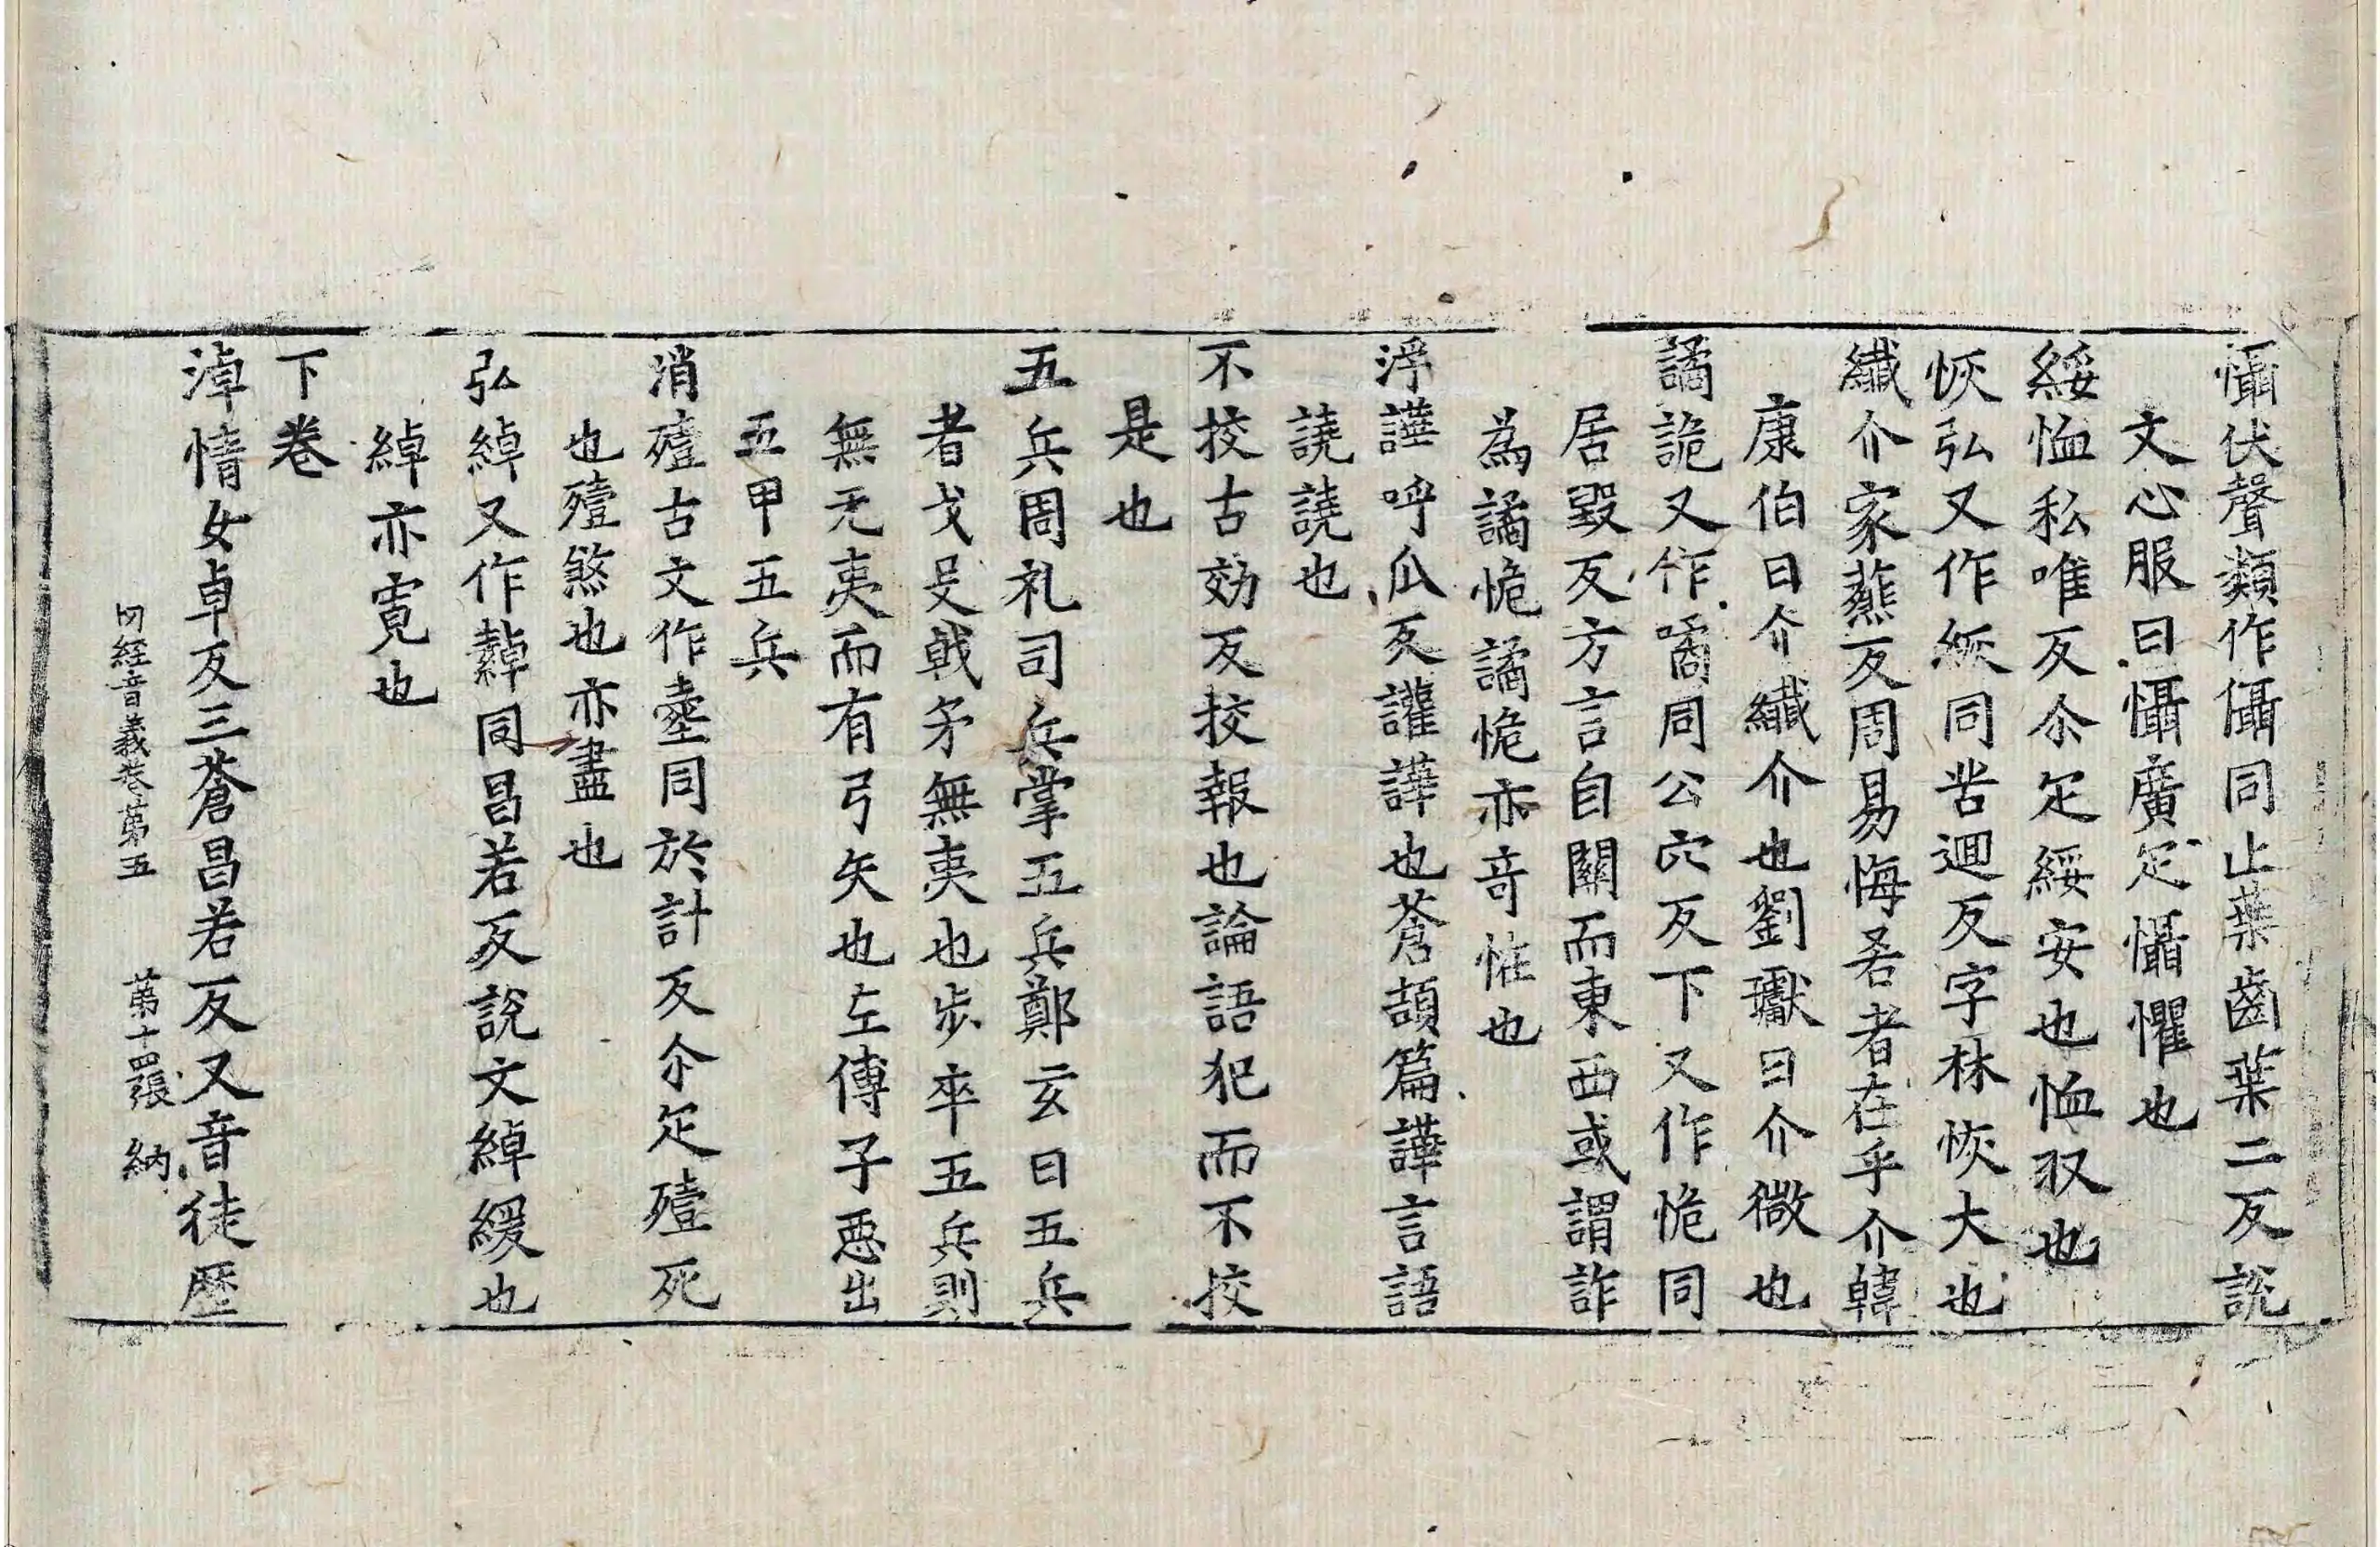 懾伏聲類作㒤同止葉齒葉二反說
文心服曰懾廣疋懾懼也
綏恤私唯反尒疋綏安也恤収也
恢弘又作𥿆同苦迴反字林恢大也
纎介家䕸反周易悔吝者在乎介韓
康伯曰介纎介也劉瓛曰介微也
譎詭又作噊同公穴反下又作恑同
居毀反方言自關而東西或謂詐
為譎恑譎恑亦竒恠也
浮譁呼瓜反讙譁也蒼頡篇譁言語
譊譊也
不挍古効反挍報也論語犯而不挍
是也
五兵周礼司兵掌五兵鄭玄曰五兵
者戈殳戟矛無夷也歩卒五兵則
無无夷而有弓矢也左傳子惡出
五甲五兵
消殪古文作㙪同於計反尒疋殪死
也殪煞也亦盡也
弘綽又作繛同昌若反說文綽緩也
綽亦寬也
下卷
淖情女卓反三蒼昌若反又音徒歷
内經音義卷第五 第十四張 納